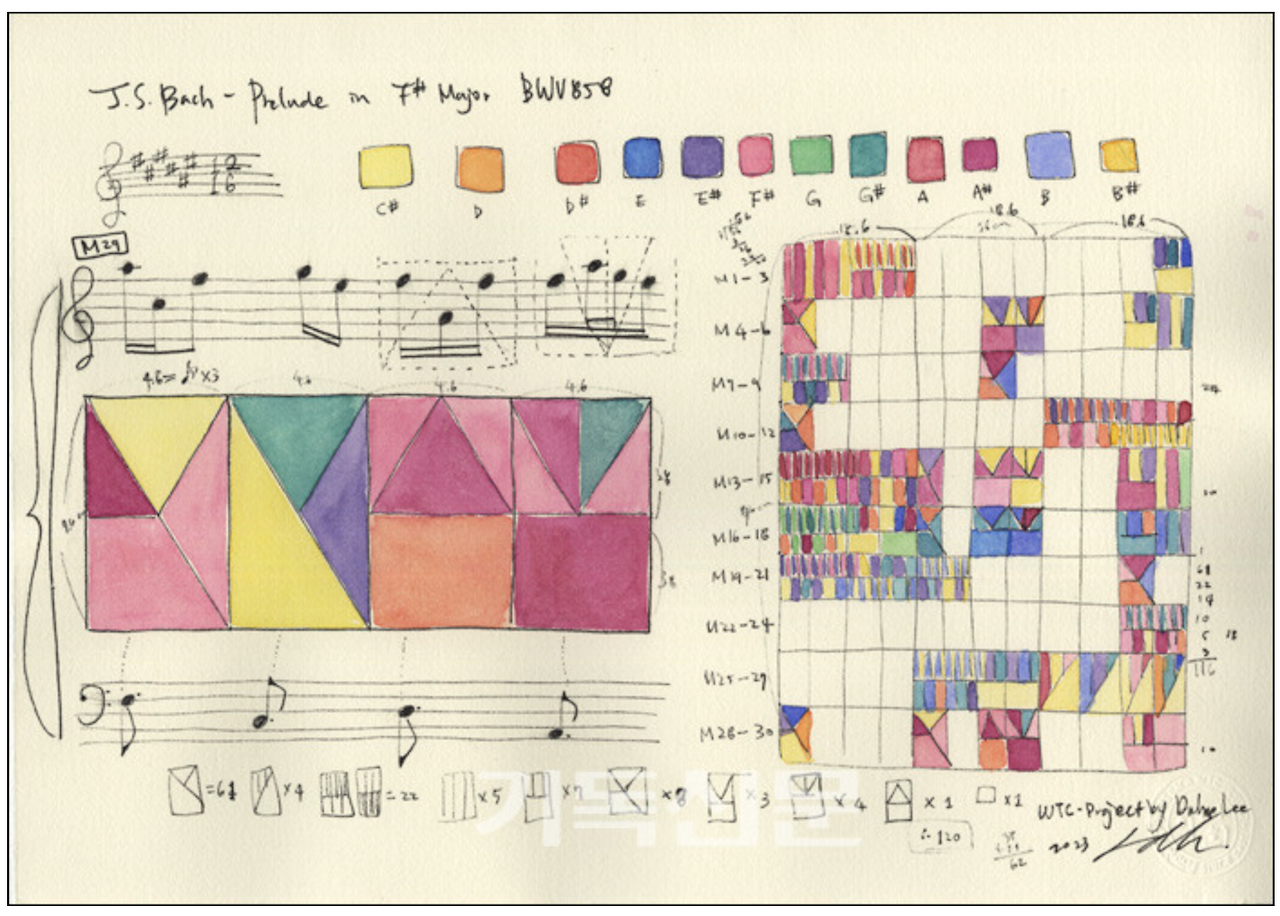 J.S. Bach - Prelude in F# Major BWV858
12
16
C# D D# E E# F# G G# A A# B B#
M29
18.6 18.6 18.6
M1-3
M4-6
M7-9
M10-12
M13-15
M16-18
M19-21
M22-24
M25-27
M28-30
4.6= ♪×3 4.6 4.6 4.6
=68 ×4 =22 ×5 ×7 ×8 ×3 ×4 ×1 ×1
기독신문
WTC-Project by Dahye Lee
2023